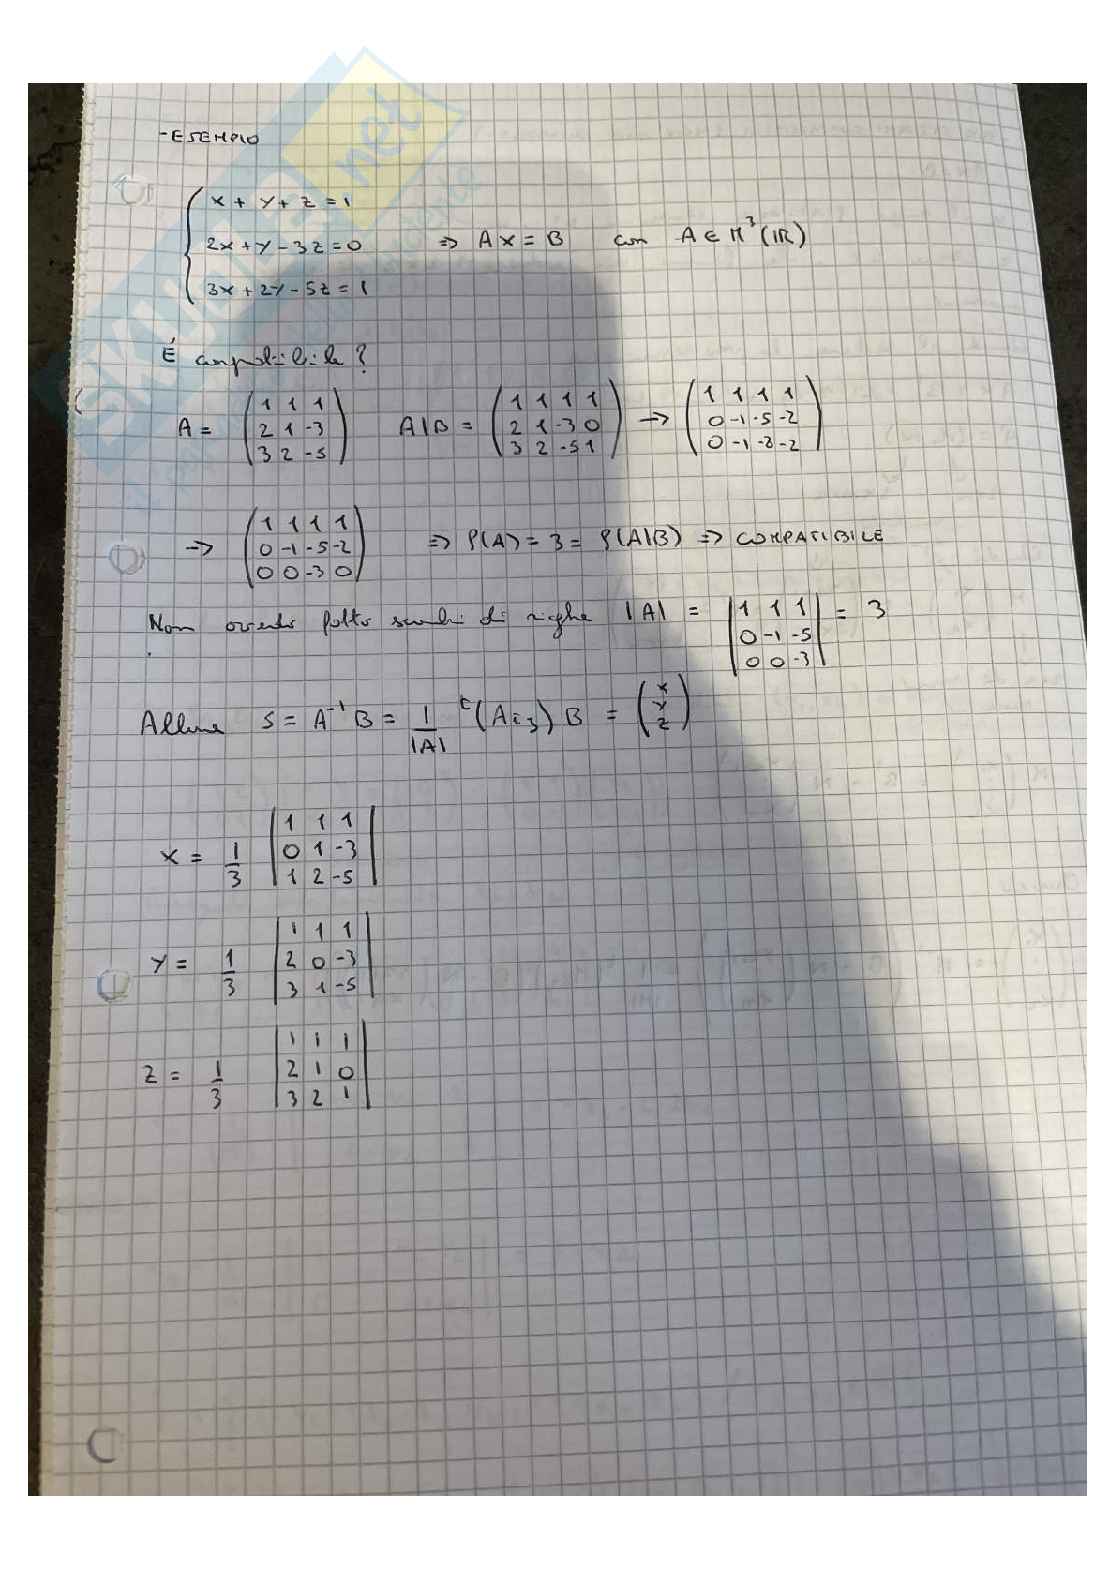 - ESEMPIO
x + y + z = 1
2x + y - 3z = 0 => AX = B con A ∈ M³(IR)
3x + 2y - 5z = 1
É compatibile?
A = (1 1 1 / 2 1 -3 / 3 2 -5) A|B = (1 1 1 1 / 2 1 -3 0 / 3 2 -5 1) → (1 1 1 1 / 0 -1 -5 -2 / 0 -1 -8 -2)
→ (1 1 1 1 / 0 -1 -5 -2 / 0 0 -3 0) => ρ(A) = 3 = ρ(A|B) => COMPATIBILE
Non avendo fatto scambi di righe |A| = |1 1 1 / 0 -1 -5 / 0 0 -3| = 3
Allora S = A⁻¹ B = 1/|A| ᵗ(Aij) B = (x / y / z)
x = 1/3 |1 1 1 / 0 1 -3 / 1 2 -5|
y = 1/3 |1 1 1 / 2 0 -3 / 3 1 -5|
z = 1/3 |1 1 1 / 2 1 0 / 3 2 1|